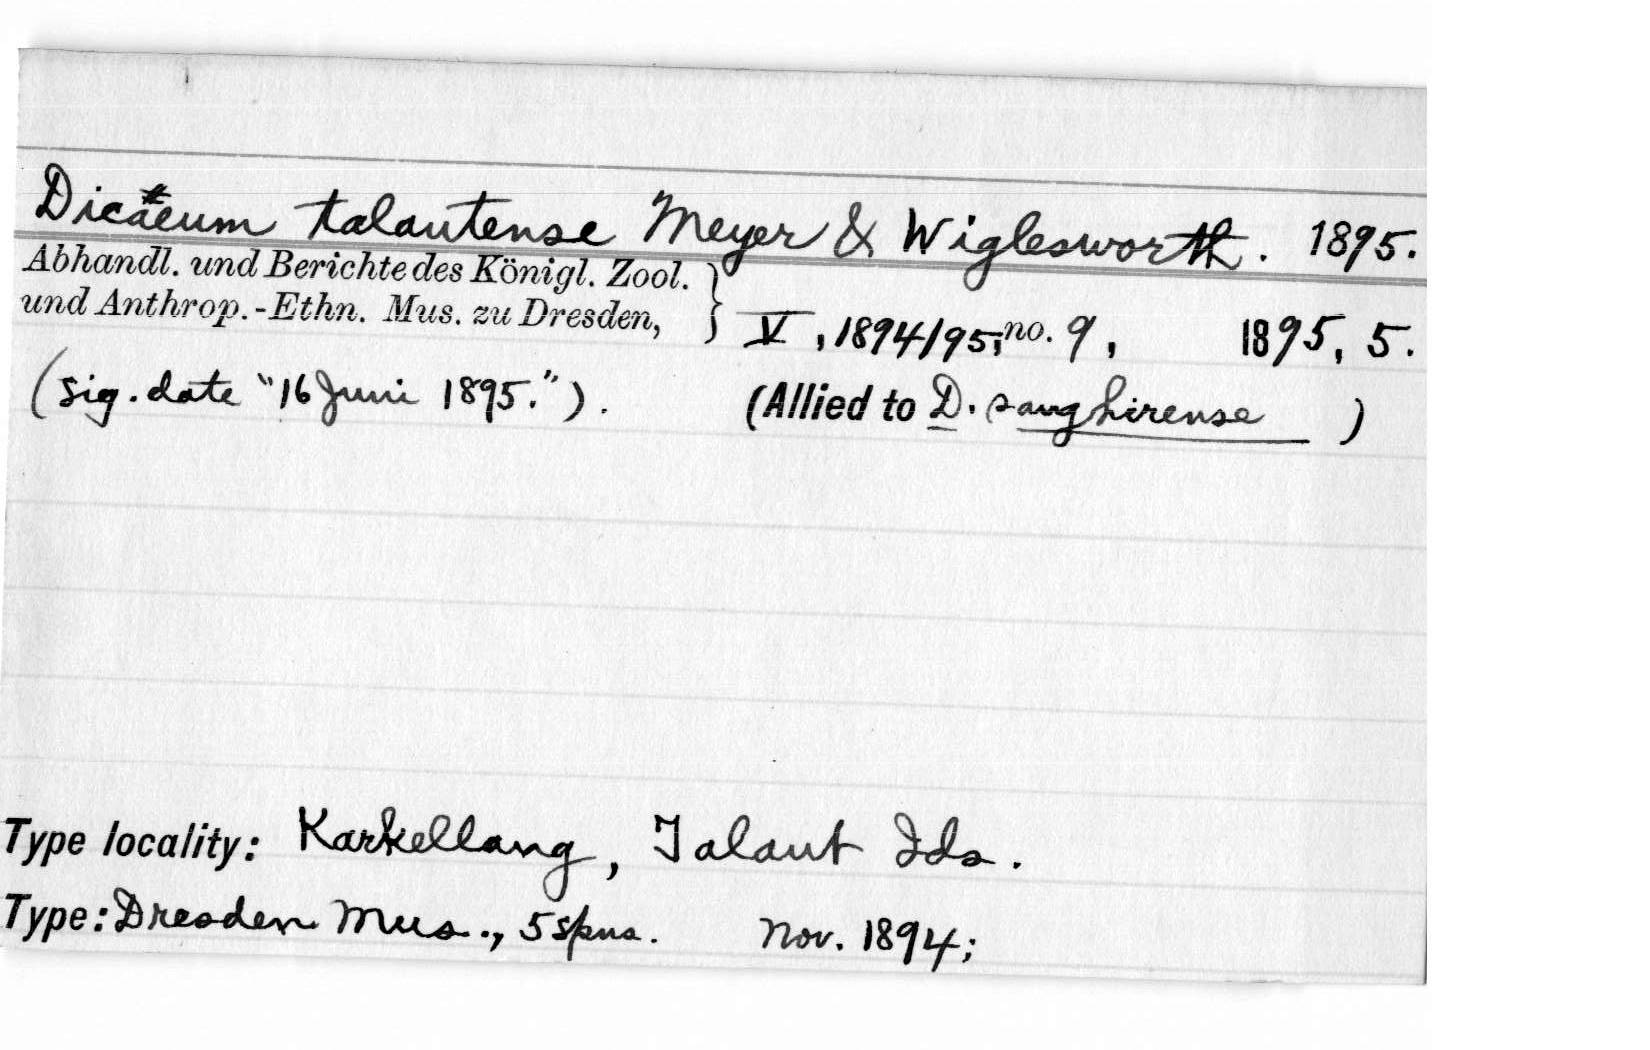 Dicaeum talautense Meyer & Wiglesworth. 1895.
Abhandl. und Berichte des Königl. Zool.
und Anthrop.-Ethn. Mus. zu Dresden, } V, 1894/95, no. 9, 1895, 5.
(sig. date "16 Juni 1895."). (Allied to D. sanghirense )
Type locality: Karkellang, Talaut Ids.
Type: Dresden Mus., 5 spns. Nov. 1894;